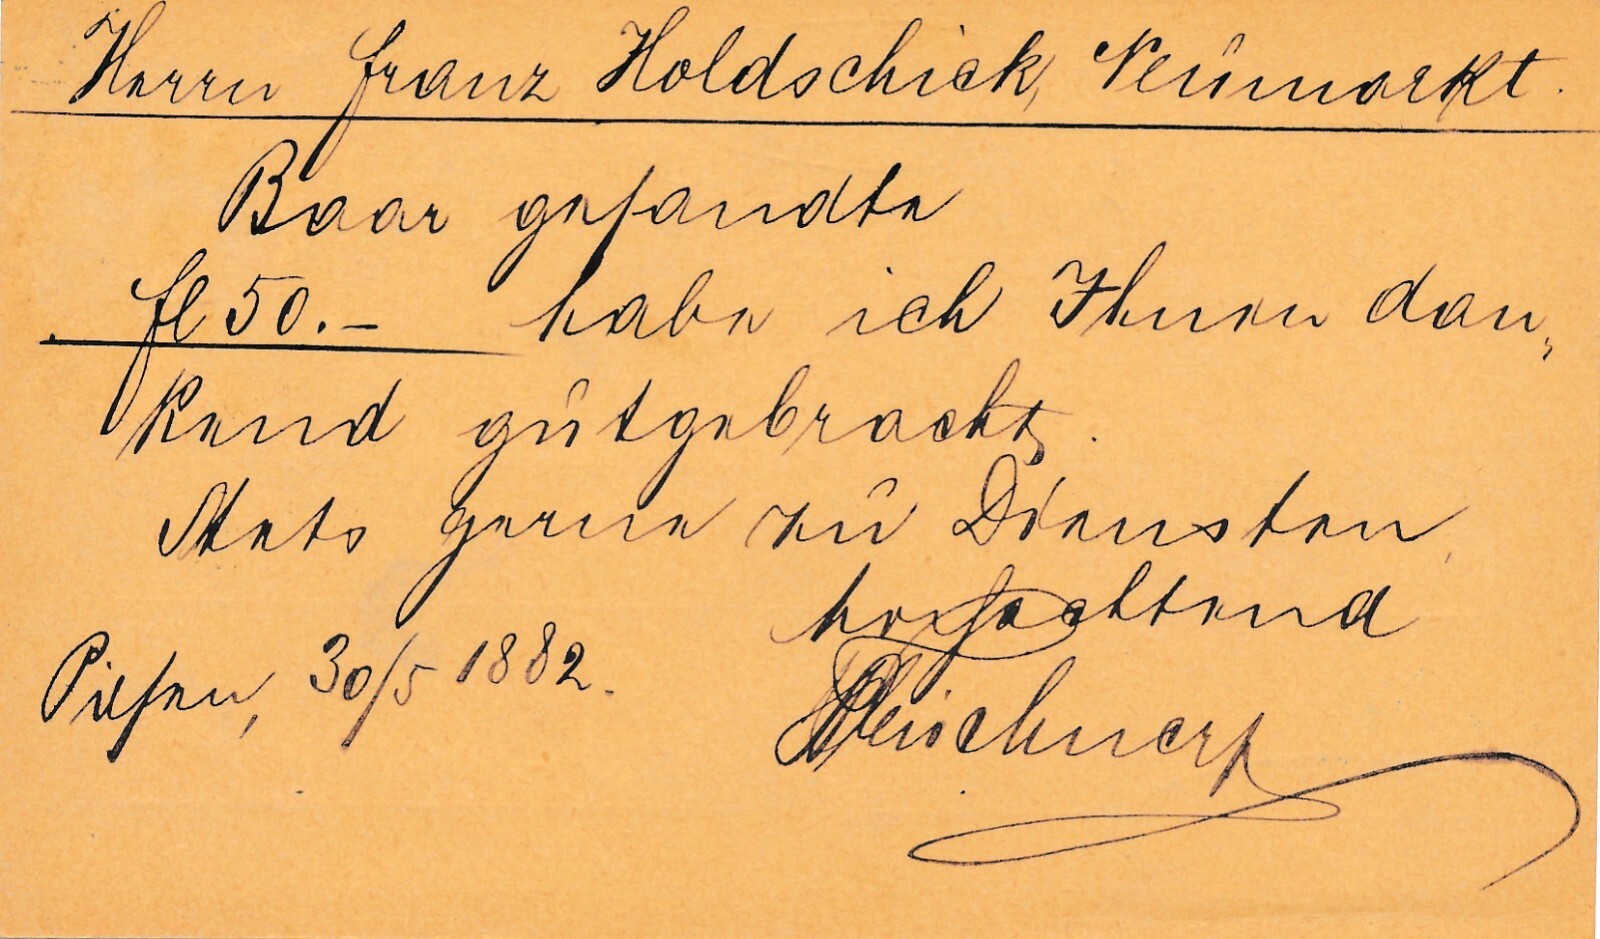 Herrn Franz Holdschick, Neumarkt.
Baar gesandte
fl 50.- habe ich Ihnen dan„
kend gutgebracht.
Stets gerne zu Diensten
hochachtend
Pilsen, 30/5 1882.